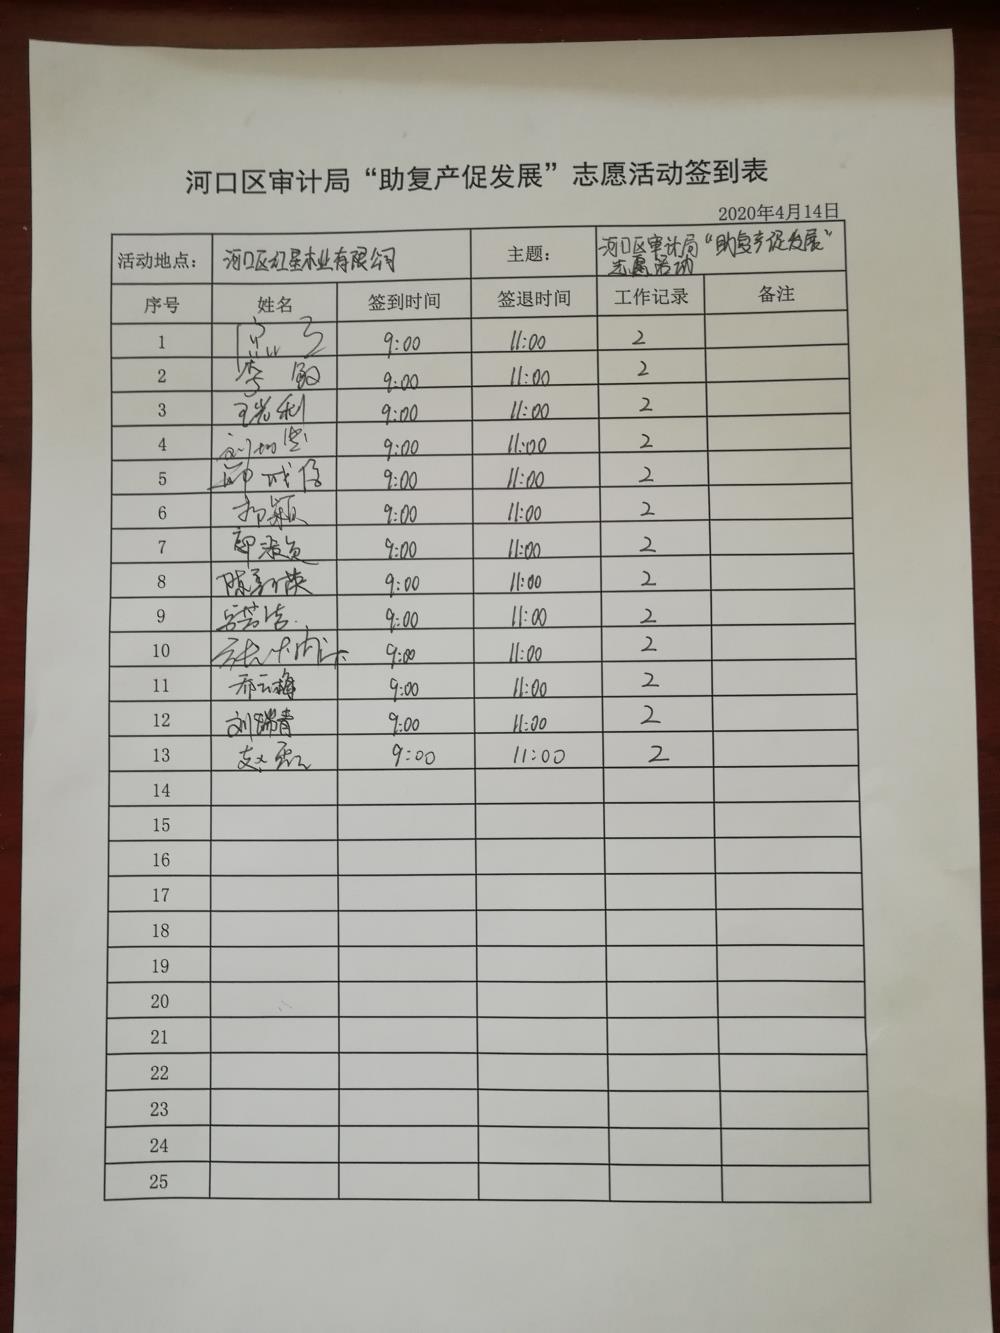 河口区审计局“助复产促发展”志愿活动签到表
2020年4月14日
活动地点： 河口区红星木业有限公司 主题： 河口区审计局“助复产促发展”
志愿活动
序号 姓名 签到时间 签退时间 工作记录 备注
1 9:00 11:00 2
2 李敏 9:00 11:00 2
3 9:00 11:00 2
4 9:00 11:00 2
5 9:00 11:00 2
6 9:00 11:00 2
7 9:00 11:00 2
8 9:00 11:00 2
9 9:00 11:00 2
10 9:00 11:00 2
11 邢云梅 9:00 11:00 2
12 刘瑞青 9:00 11:00 2
13 9:00 11:00 2
14
15
16
17
18
19
20
21
22
23
24
25